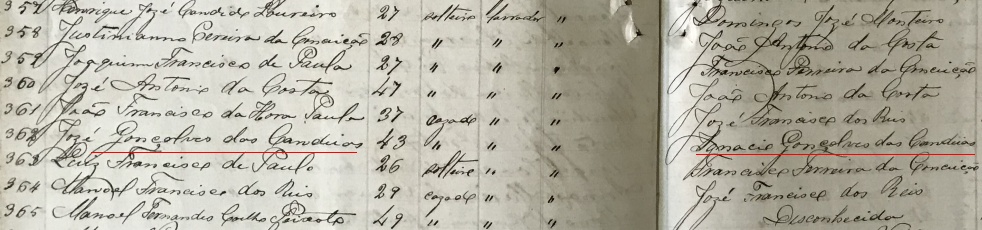 357 Henrique Jozé Candido Loureiro 27 solteiro lavrador " Domingos Jozé Monteiro
358 Justinianno Pereira da Conceição 28 " " " João Antonio da Costa
359 Joaquim Francisco de Paula 27 " " " Francisco Ferreira da Conceição
360 Jozé Antonio da Costa 47 " " " João Antonio da Costa
361 João Francisco da Hora Paula 37 cazado " " Jozé Francisco dos Reis
362 Jozé Gonçalves das Candeias 43 " " " Ignacio Gonçalves das Candeias
363 Luiz Francisco de Paulo 26 solteiro " " Francisco Ferreira da Conceição
364 Manoel Francisco dos Reis 29 cazado " " Jozé Francisco dos Reis
365 Manoel Fernandes Coelho Peixoto 49 " " " Desconhecido